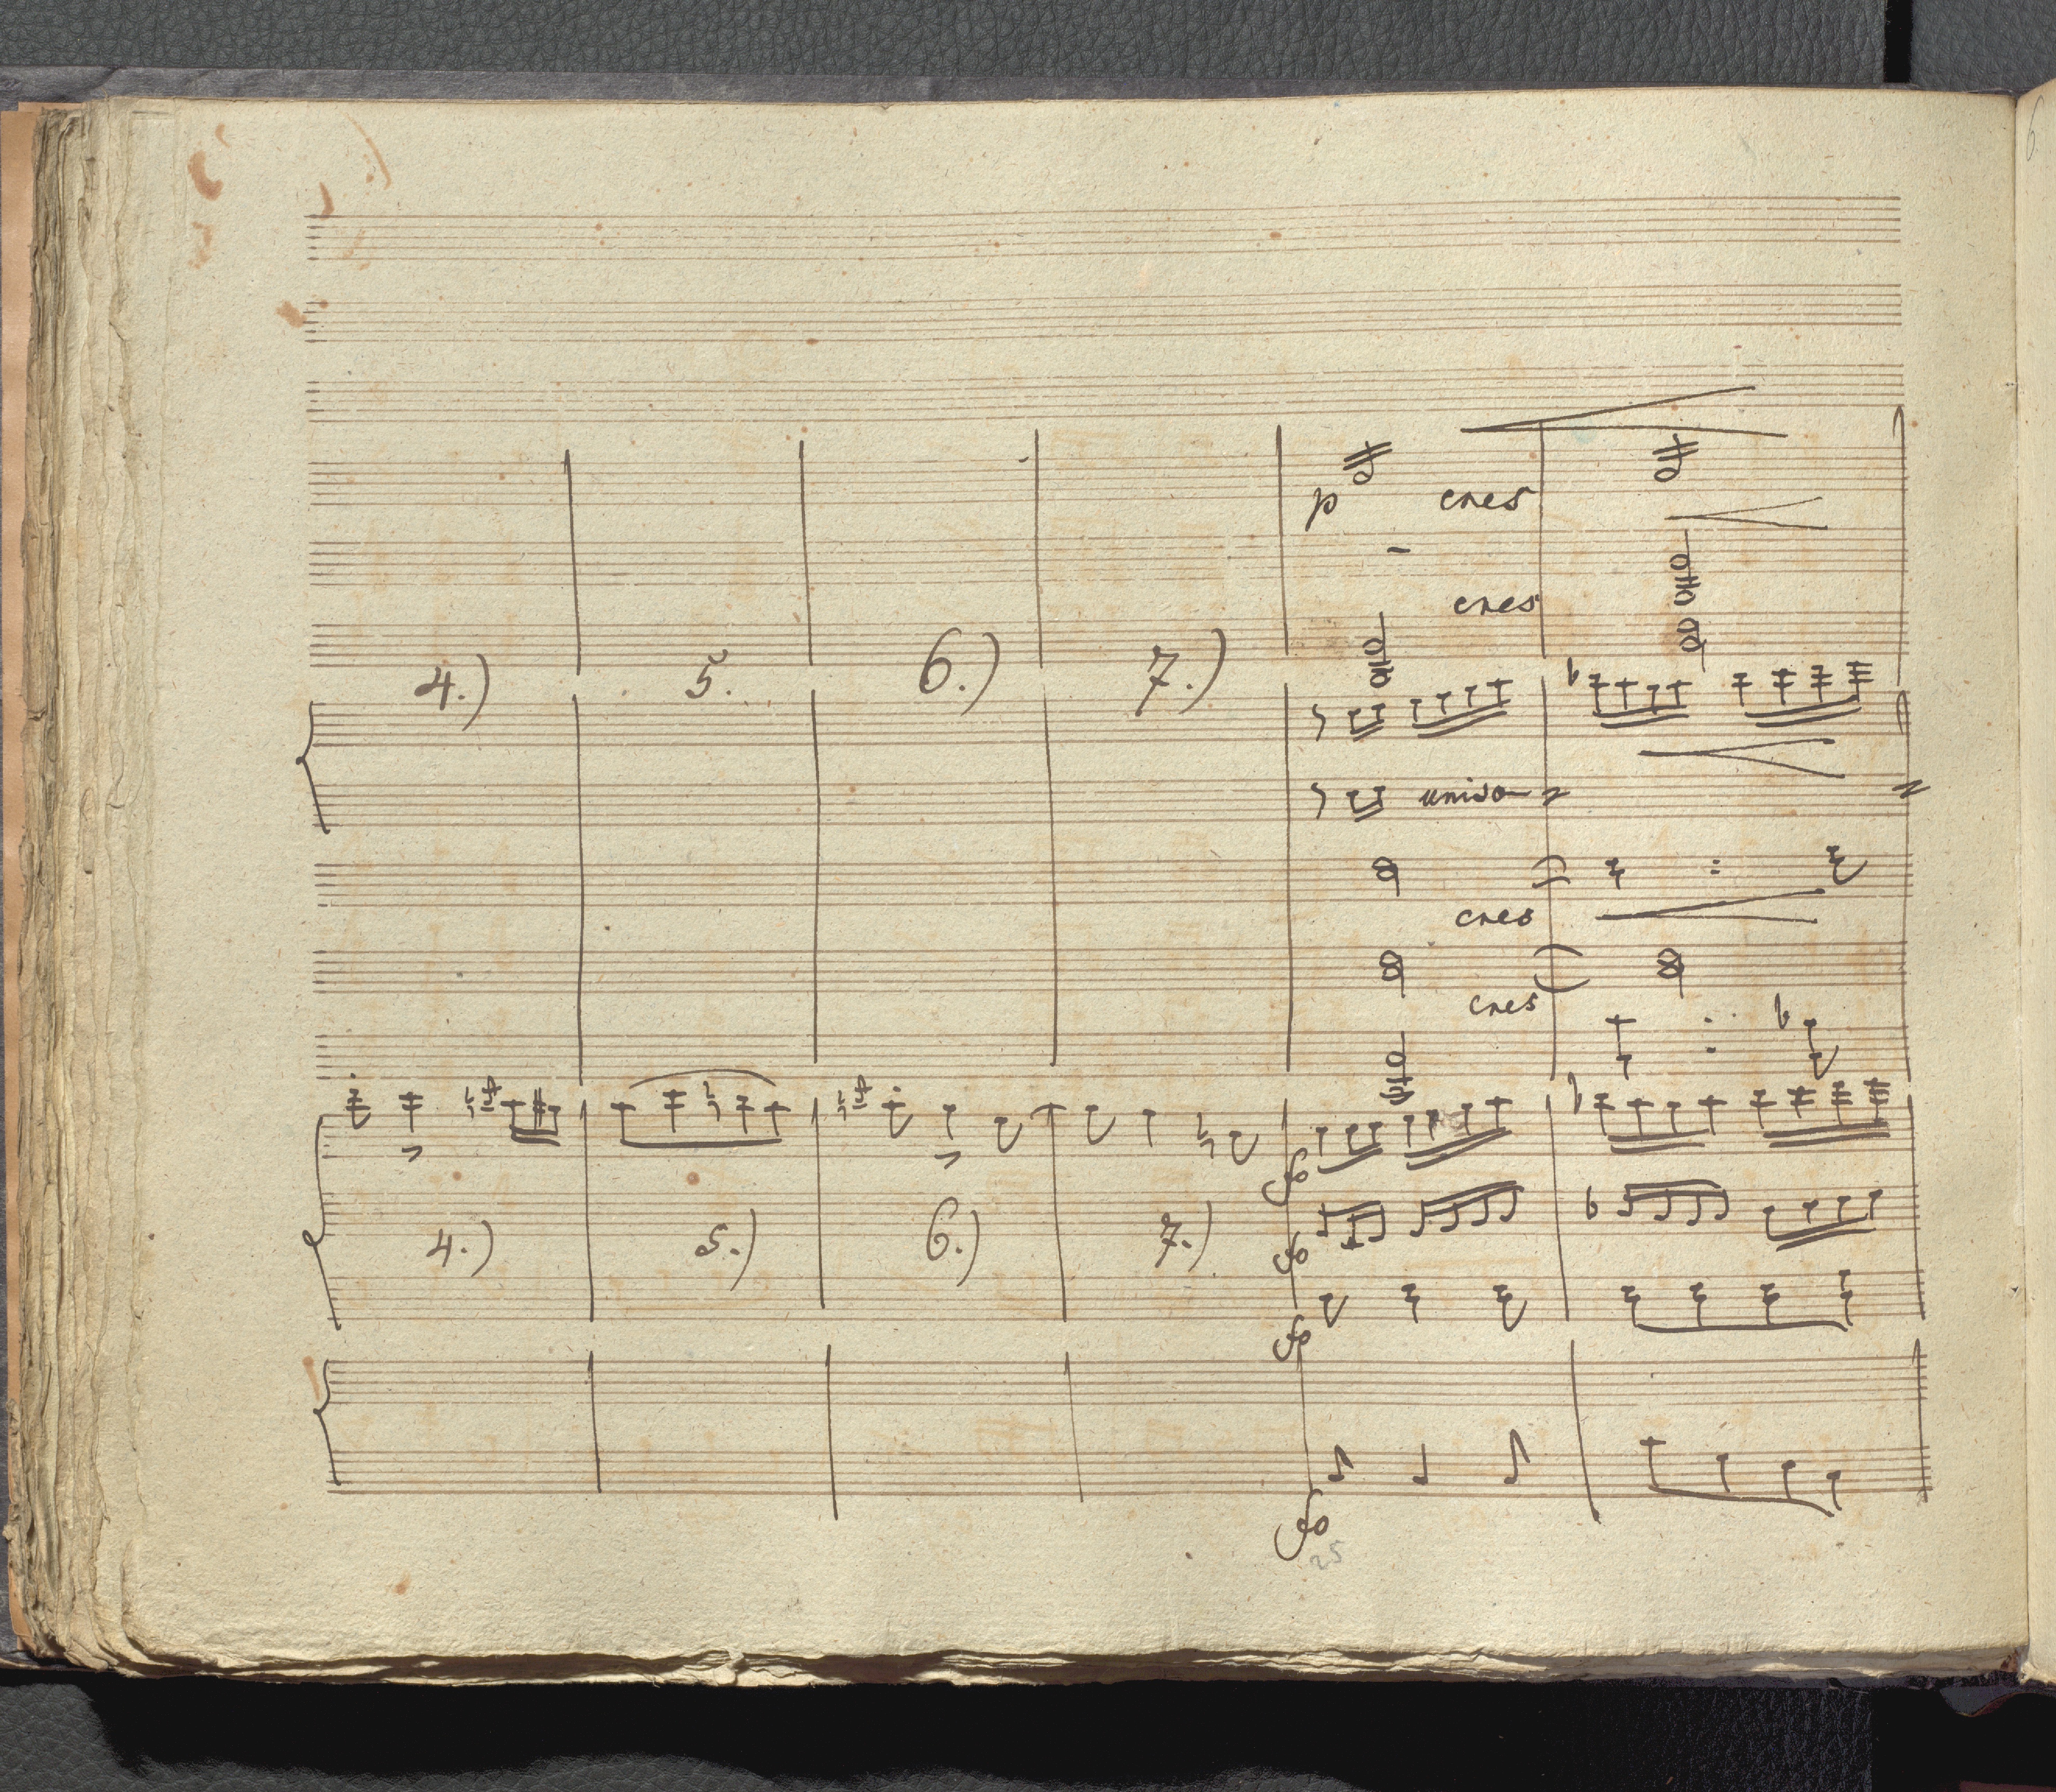 p cres
cres
4.) 5. 6.) 7.)
unison
cres
cres
fo
4.) 5.) 6.) 7.) fo
fo
fo
25
6